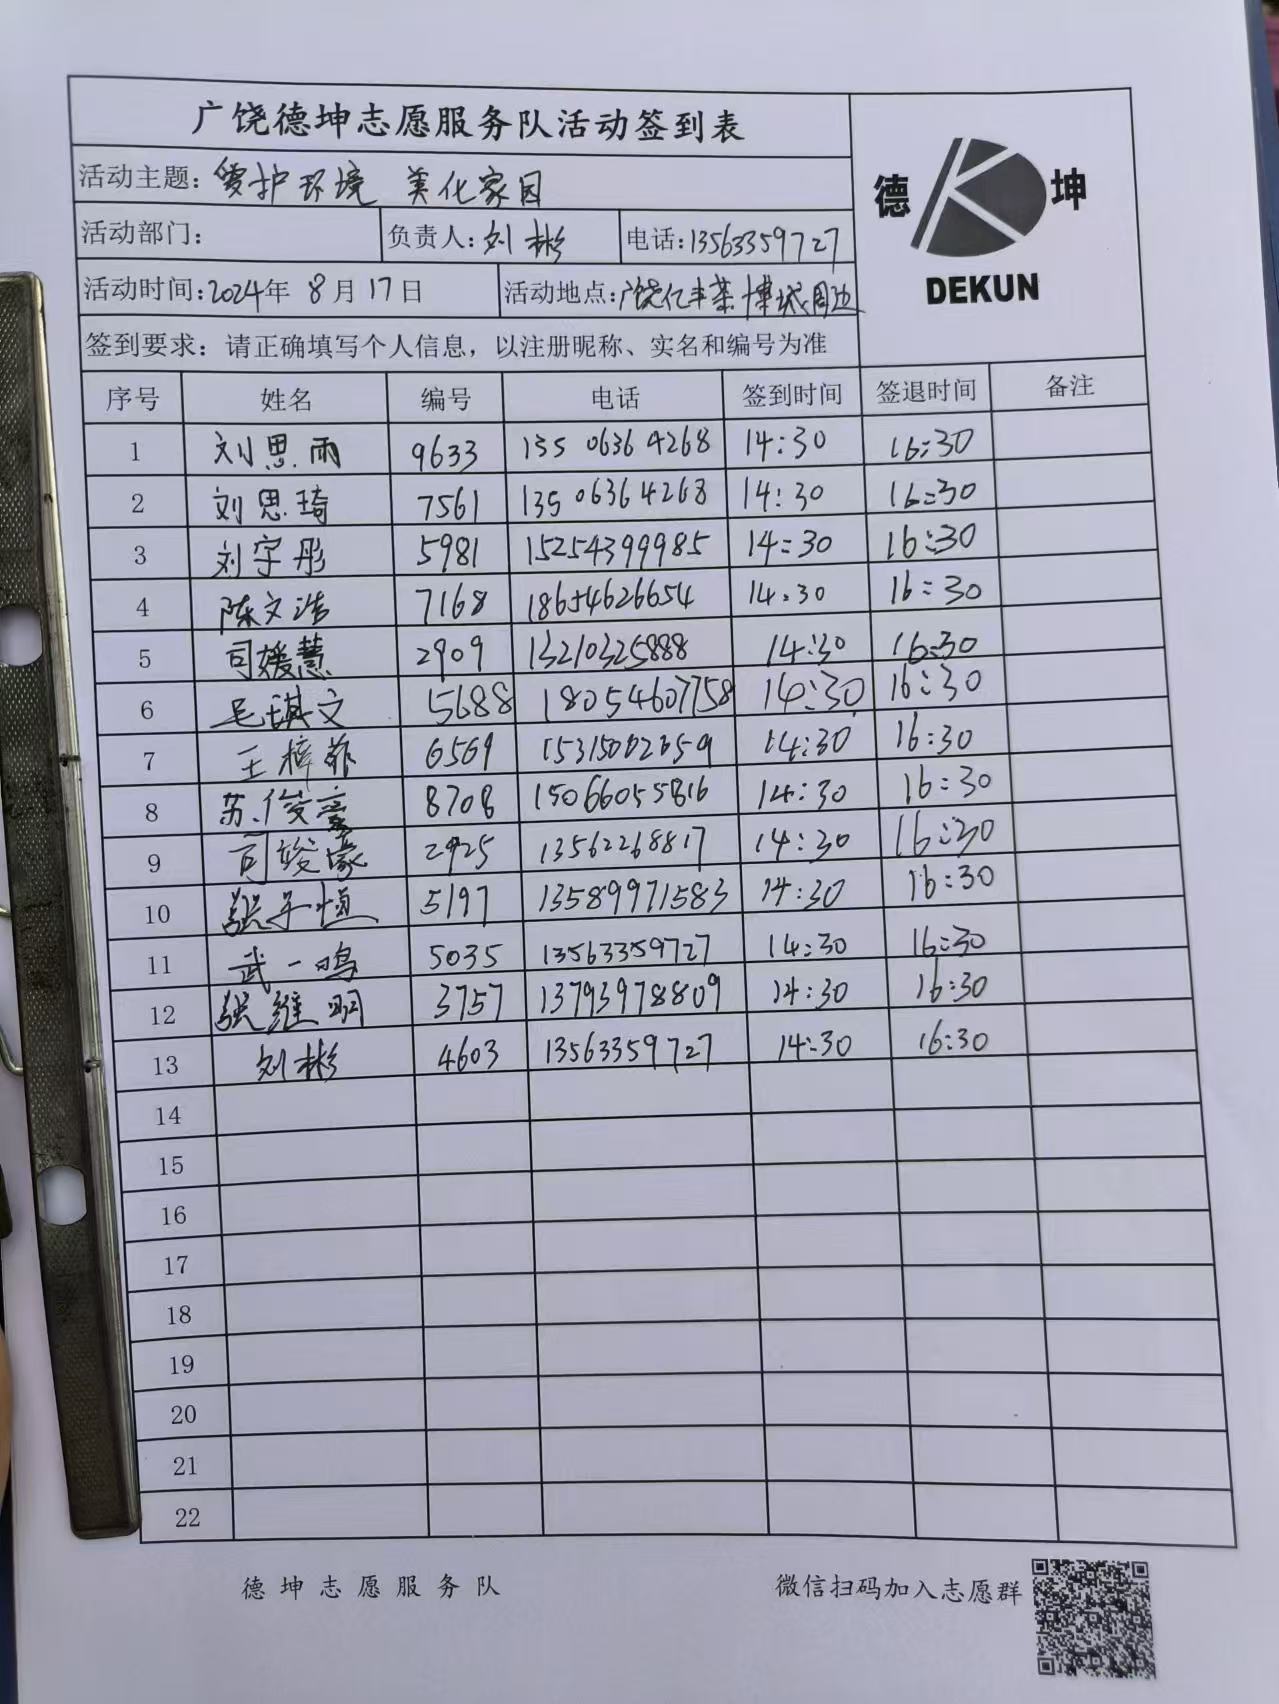 广饶德坤志愿服务队活动签到表
德 坤
DEKUN
活动主题：爱护环境 美化家园
活动部门： 负责人：刘彬 电话：13563359727
活动时间：2024年 8月17日 活动地点：广饶亿丰茶博城周边
签到要求：请正确填写个人信息，以注册昵称、实名和编号为准
序号 姓名 编号 电话 签到时间 签退时间 备注
1 刘思雨 9633 13506364268 14:30 16:30
2 刘思琦 7561 13506364268 14:30 16:30
3 刘宇彤 5981 15254399985 14:30 16:30
4 陈文浩 7168 18654626654 14:30 16:30
5 司媛慧 2909 13210325888 14:30 16:30
6 毛琪文 15688 18054607758 14:30 16:30
7 王梓菲 6569 15315002659 14:30 16:30
8 苏俊豪 8708 15066055816 14:30 16:30
9 司竣豪 2925 13562268817 14:30 16:30
10 张子恒 5197 13589971583 14:30 16:30
11 武一鸣 5035 13563359727 14:30 16:30
12 张继明 3757 13793978809 14:30 16:30
13 刘彬 4603 13563359727 14:30 16:30
14
15
16
17
18
19
20
21
22
德坤志愿服务队 微信扫码加入志愿群